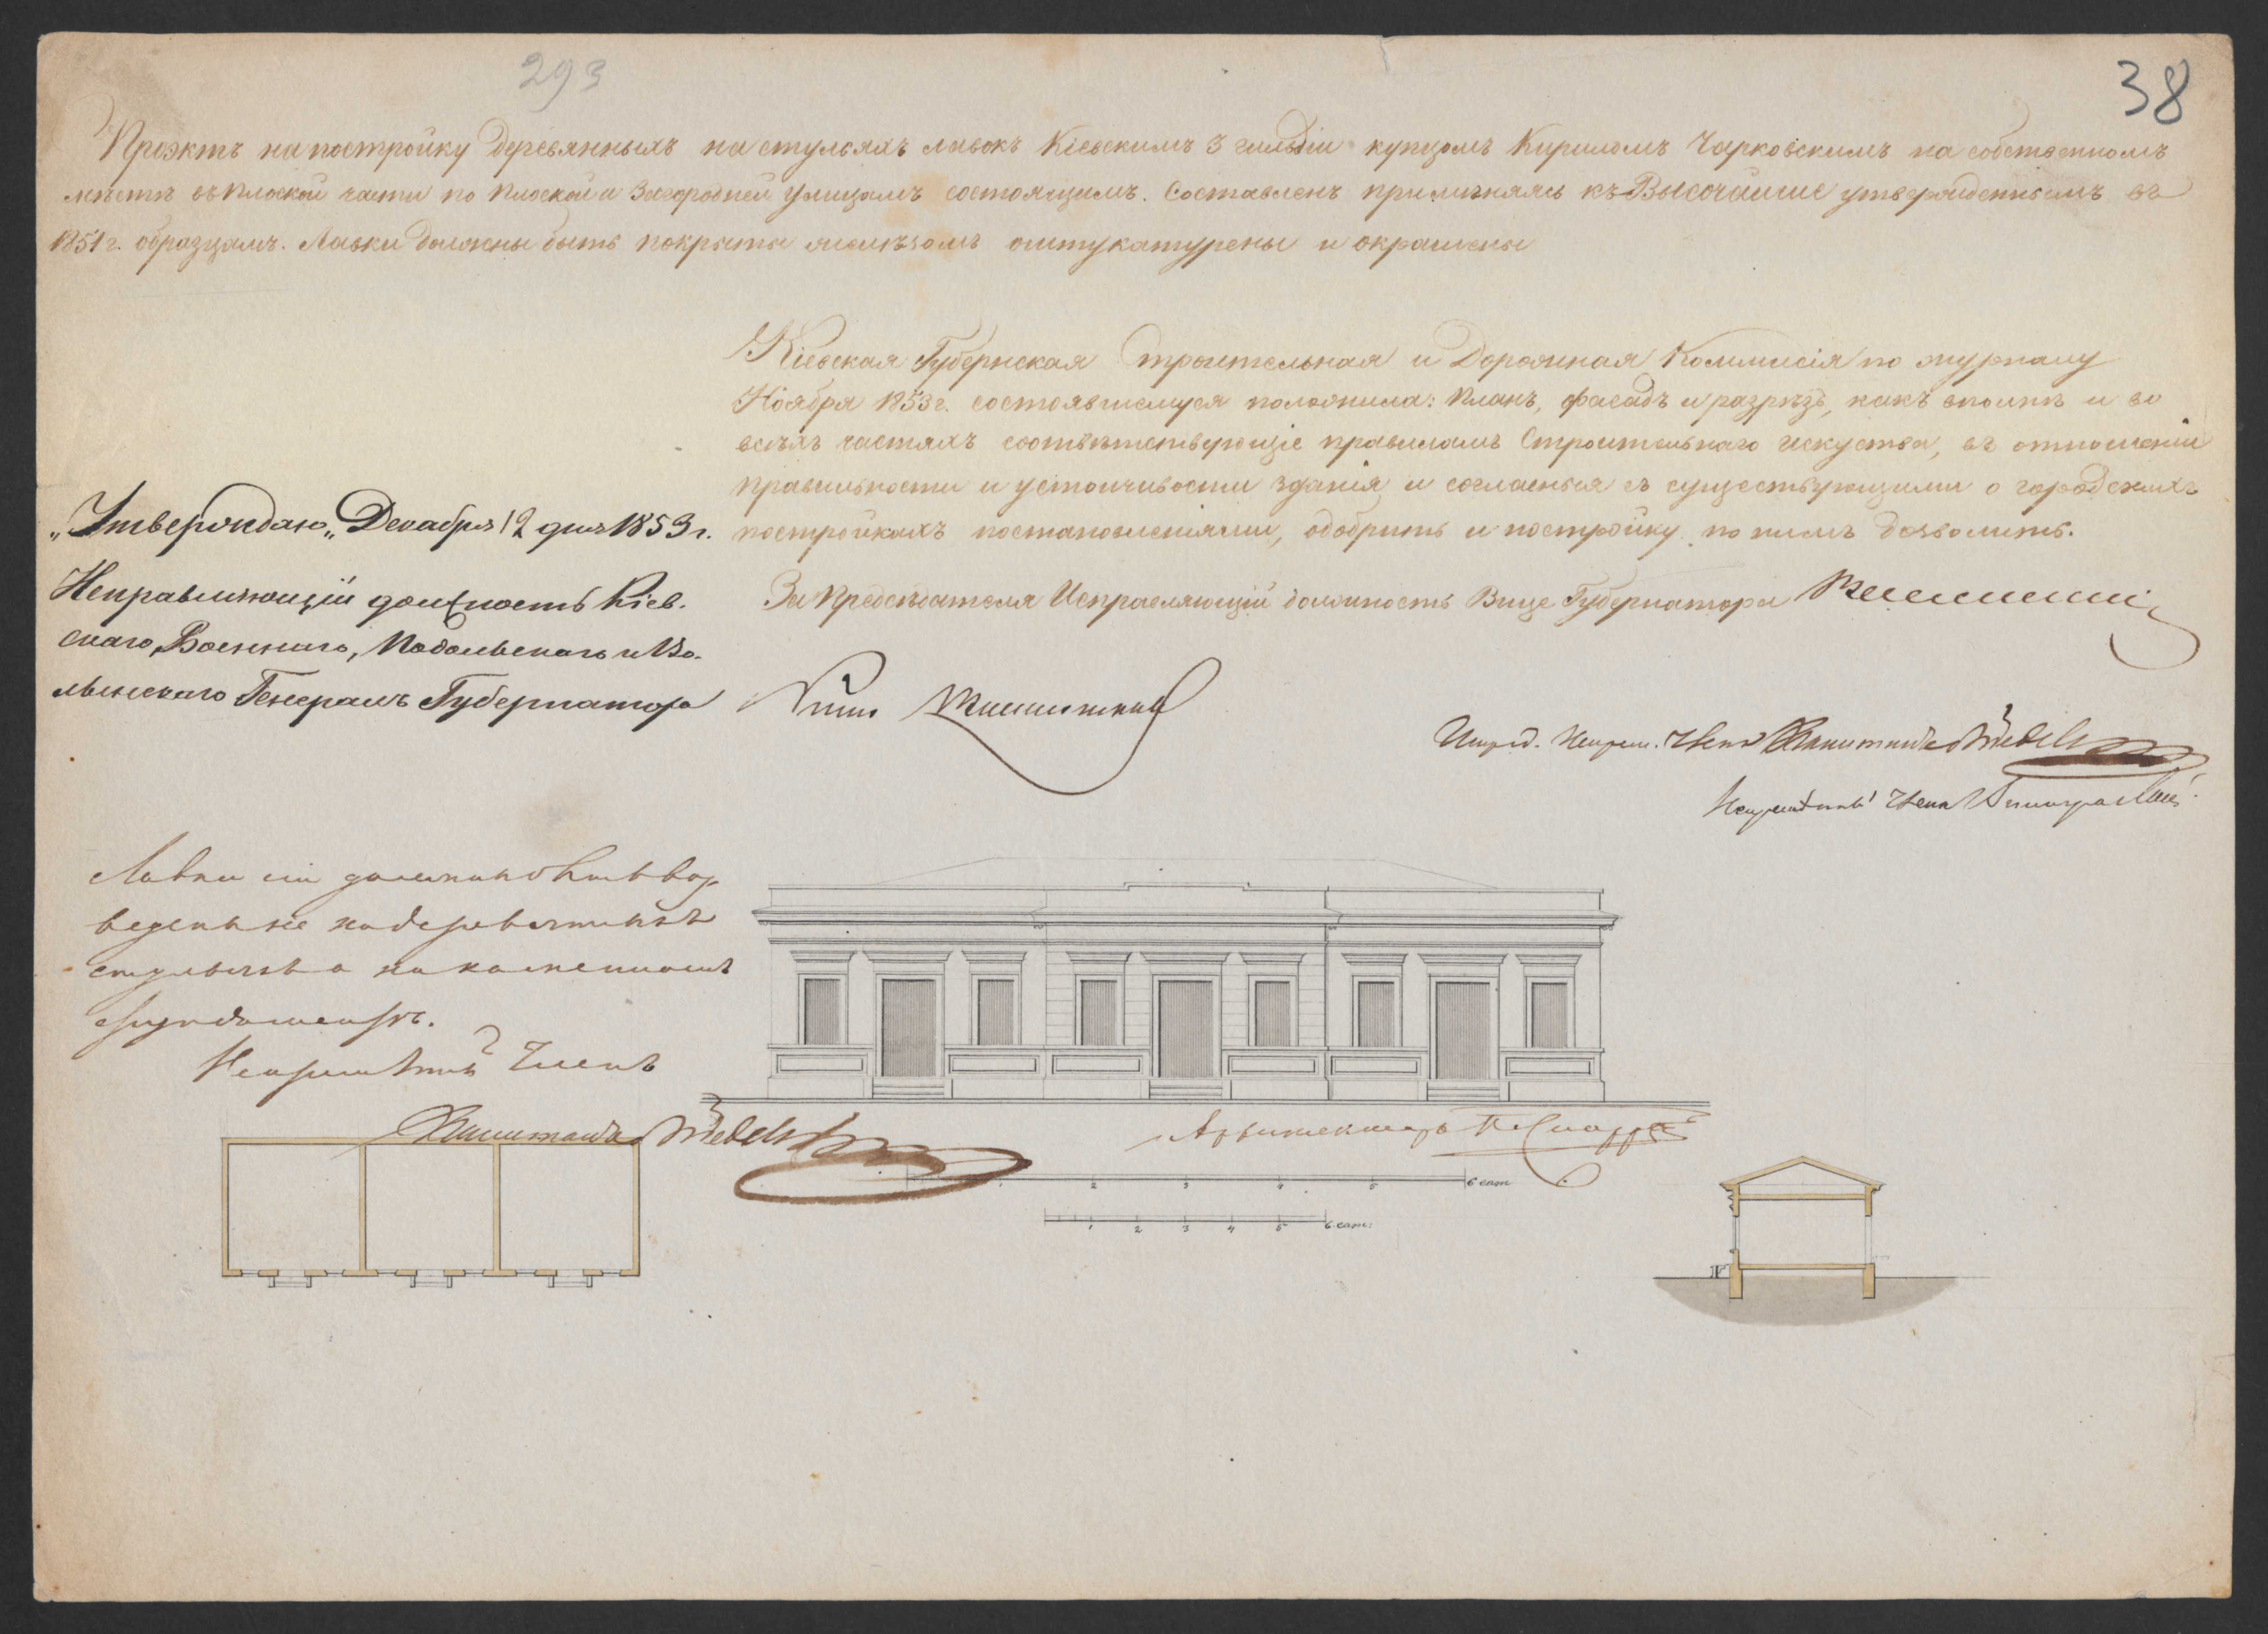 293
38
Проэктъ на постройку деревянныхъ на стульяхъ лавокъ Кіевскимъ 3 гильдіи купцомъ Кириломъ Чарковскимъ на собственномъ
мѣстѣ въ Плоской части по Плоской и Загородней улицамъ состоящимъ. Составленъ примѣняясь къ Высочайше утвержденнымъ въ
1851 г. образцамъ. Лавки должны быть покрыты желѣзомъ оштукатурены и окрашены
Кіевская Губернская Строительная и Дорожная Коммисія по журналу
Ноября 1853 г. состоявшемуся положила: Планъ, фасадъ и разрѣзъ, какъ вполнѣ и во
всѣхъ частяхъ соотвѣтствующіе правиламъ Строительнаго искуства, въ отношеніи
правильности и устойчивости зданія и согласныя съ существующими о городскихъ
постройкахъ постановленіями, одобрить и постройку по нимъ дозволить.
"Утверждаю" Декабря 12 дня 1853 г.
Исправляющій должность Кіев-
скаго Военнаго, Подольскаго и Во-
лынскаго Генералъ Губернатора
За Предсѣдателя Исправляющій должность Вице Губернатора
Члена Капитанъ
Члена
Лавки сіи должны быть воз-
ведены не на деревянныхъ
стульяхъ а на каменномъ
фундаментѣ.
Членъ
Капитанъ
Архитекторъ
2 3 4 5 6 саж
1 2 3 4 5 6 саж: